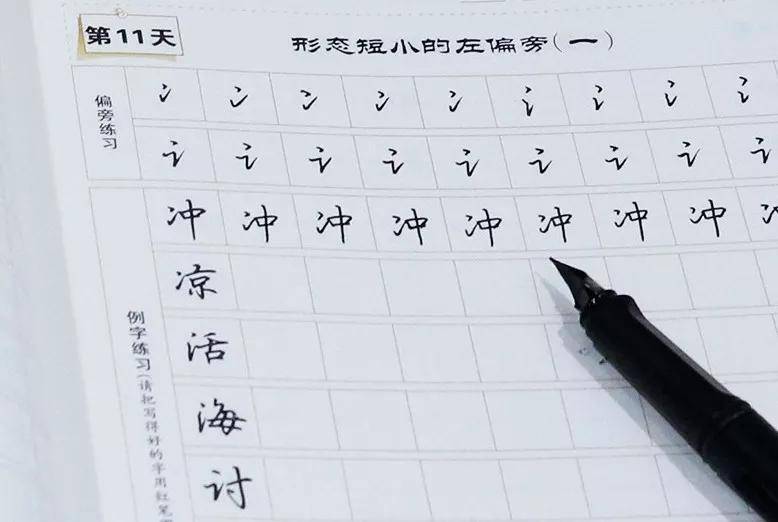 第11天
形态短小的左偏旁(一)
偏旁练习
冫 冫 冫 冫 冫 氵 氵 氵 氵
讠 讠 讠 讠 讠 讠 讠 讠 讠
例字练习(请把写得好的字用红笔
冲 冲 冲 冲 冲 冲 冲 冲
凉
活
海
讨